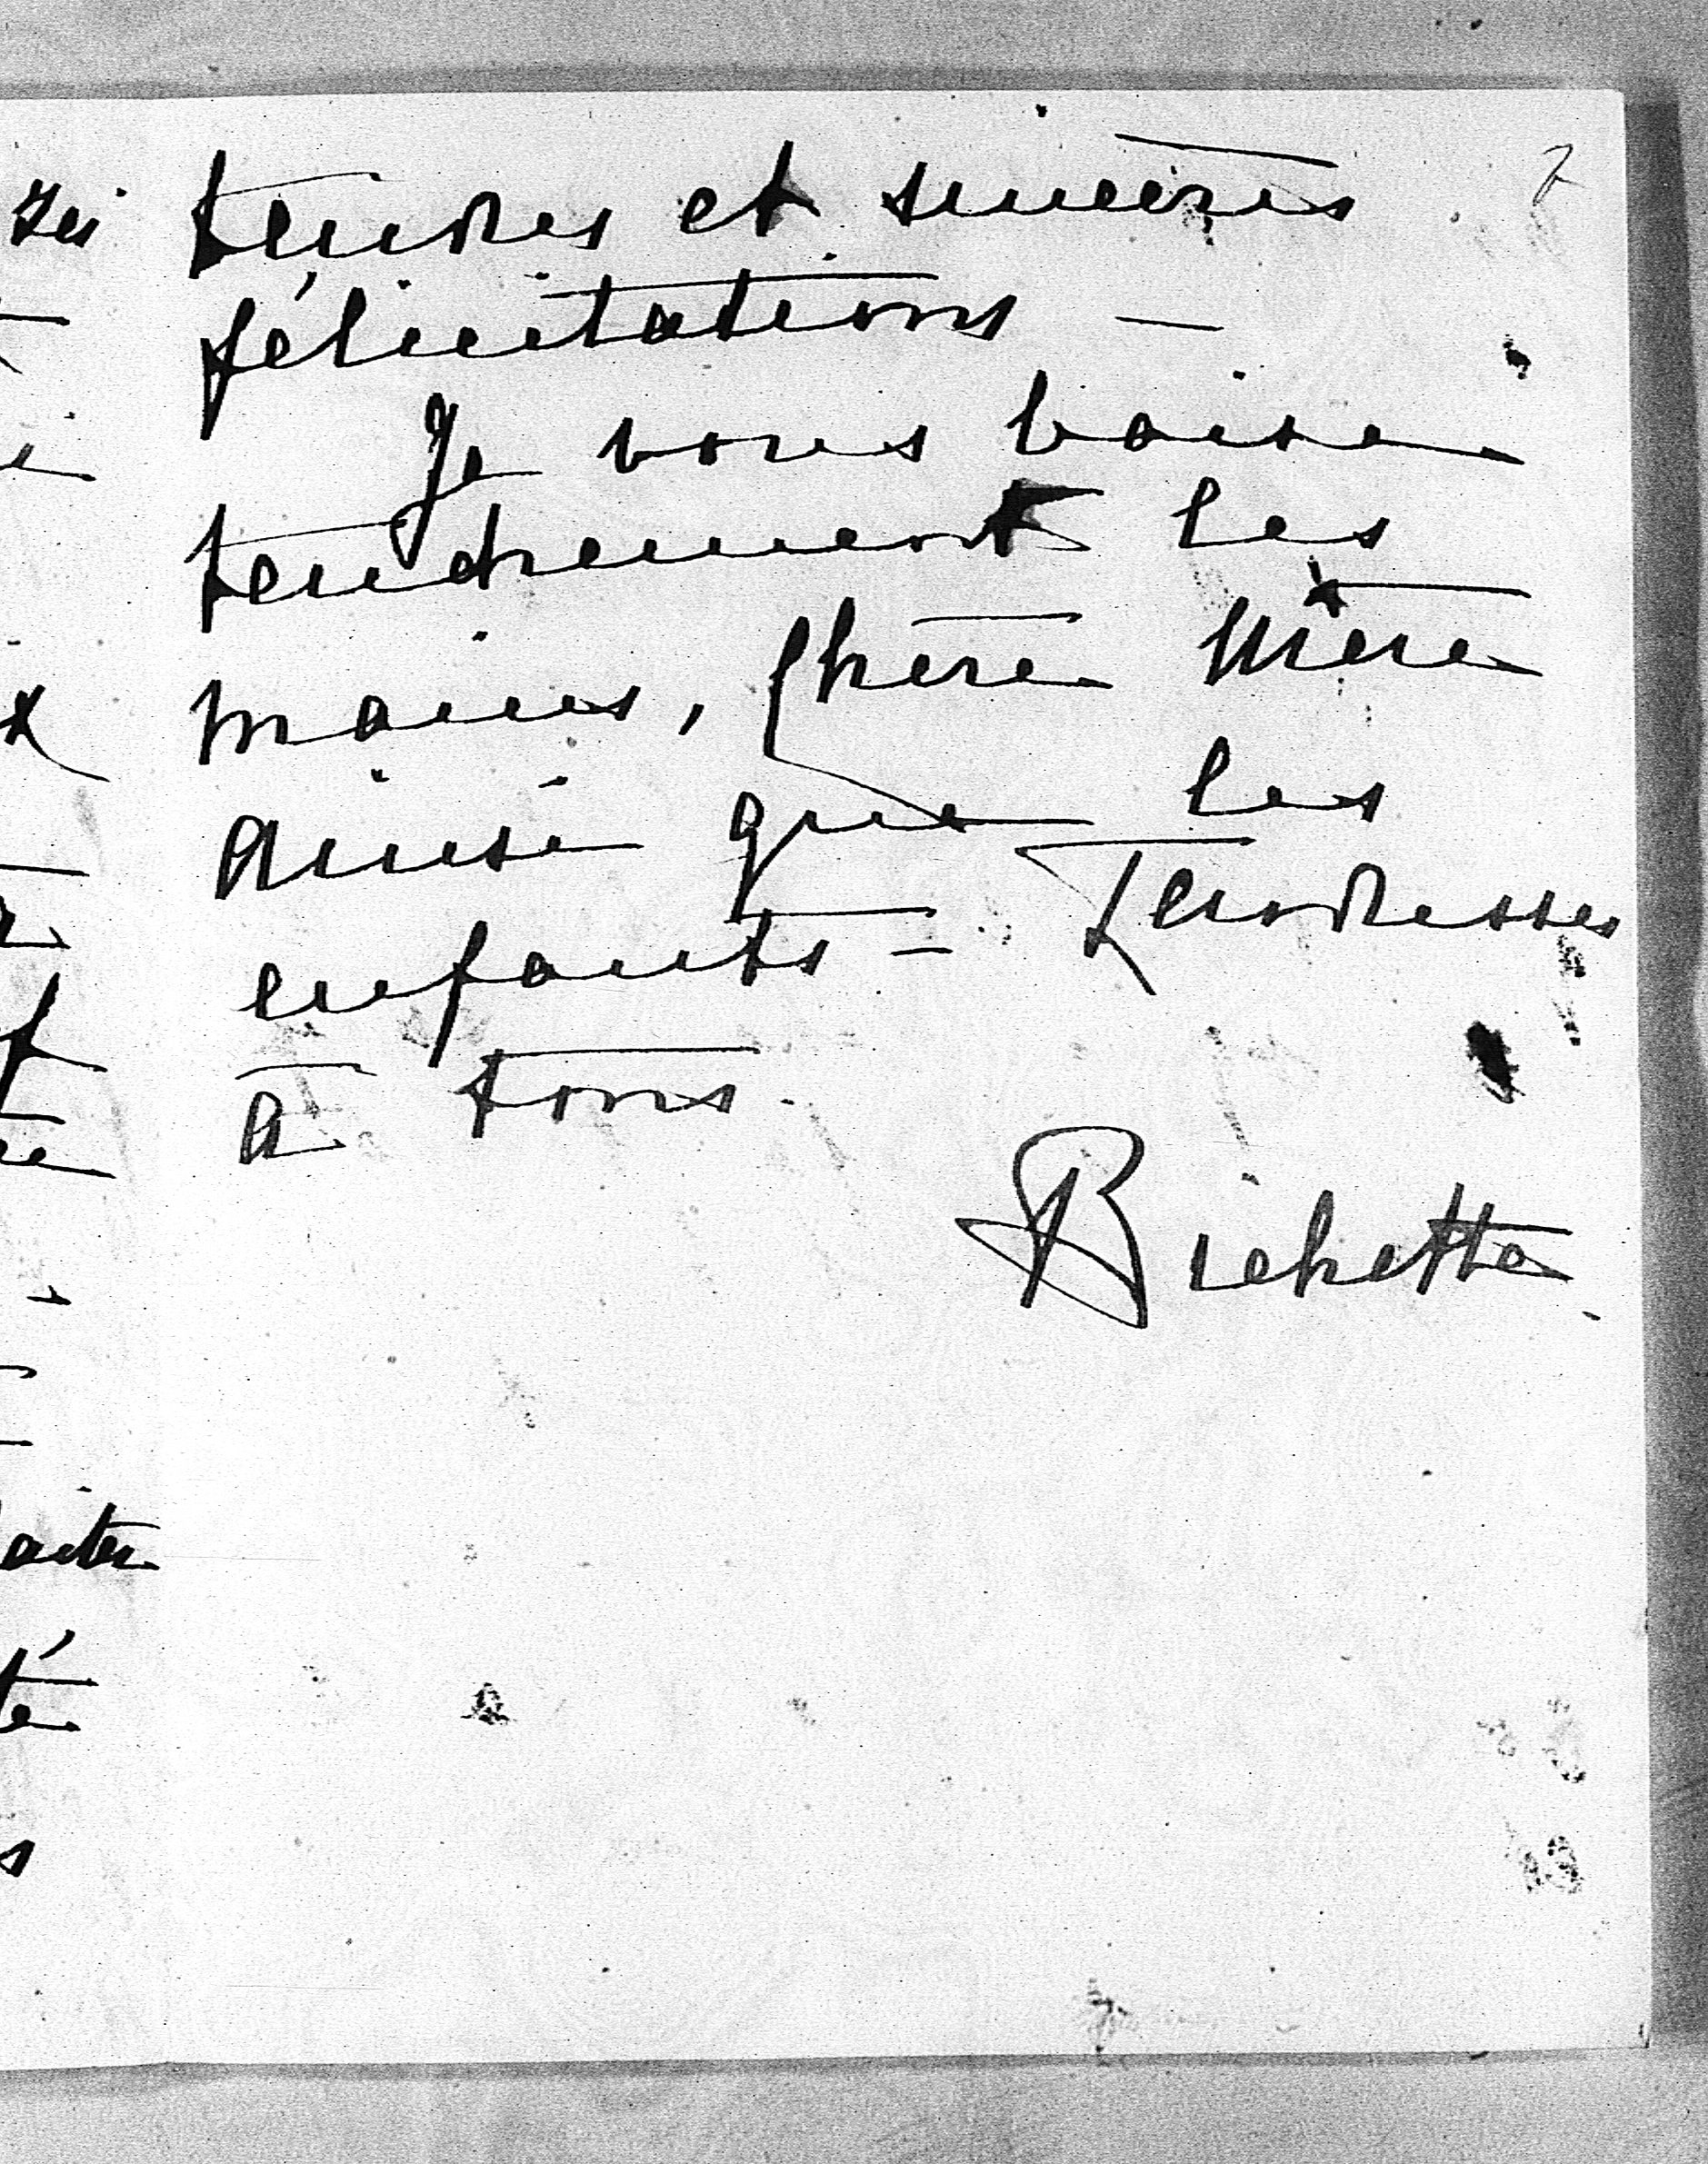 tendres et sincères
félicitations —
Je vous baise
tendrement les
mains, Chère Mère
ainsi que les
enfants — Tendresses
à tous.
Bichette